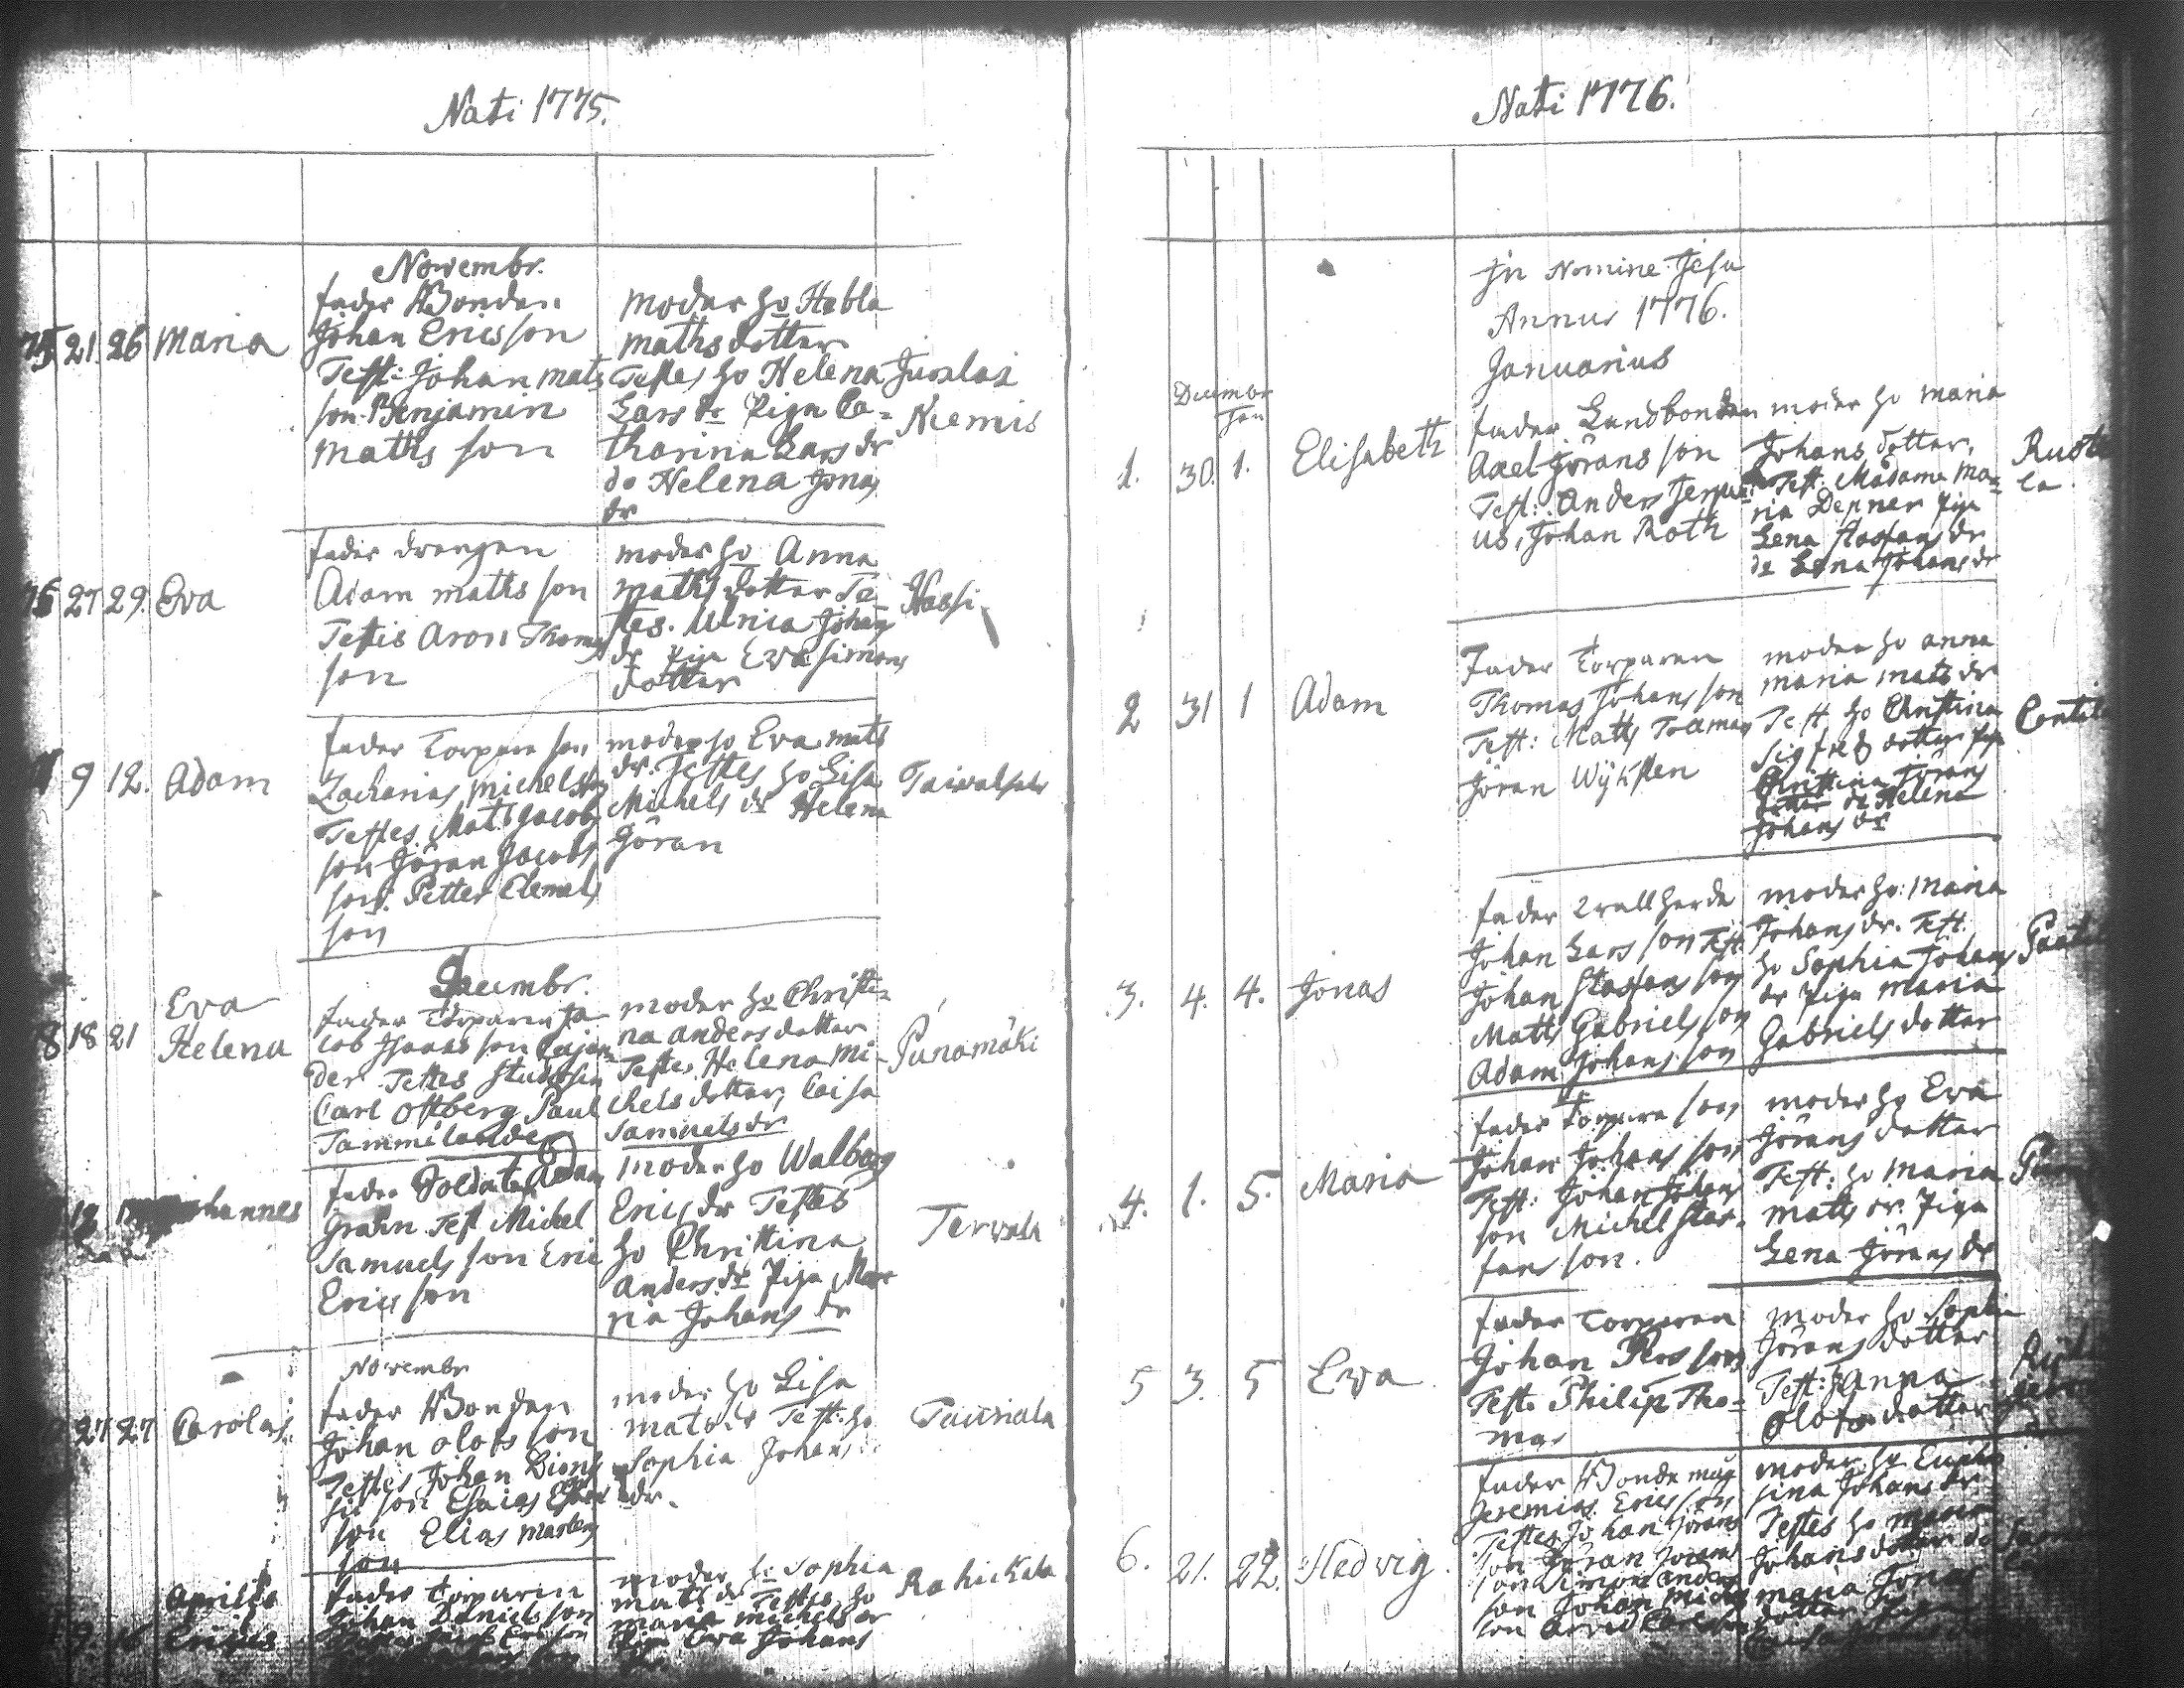 Nati 1775.
Novembr.
21. 26 Maria
fader Bonden
Johan Ericsson
Test: Johan mats
son Benjamin
maths son
moder ho Hebla
maths dotter
Testes ho Helena
Lars dr Piga Ca=
tharina Lars dr
do Helena Jonas
dr
Niemis
27 29. Eva
fader drengen
Adam maths son
Testis Aron Thomas
son
moder ho Anna
maths dotter Te
stes. Ulrica Johans
dr Piga Eva Simons
dotter
9 12. Adam
fader Torpare son
Zacharias michelson
Testes. Mats Jacobs
son Jöran Jacobs
son. Petter Clemets
son
moder ho Eva mats
dr. Testes ho Lisa
Michels dr Helena
Göran
Taivalsalo
Decembr.
8 18 21 Eva
Helena
fader Torparen Ja
cob
der Testes
Carl Ostberg Paul
Tammelander
moder ho Christi=
na anders dotter
Testes Helena Mi=
chels dotter, Caisa
Samuels dr
Punamäki
hannes
fader Soldaten Adam
Grahn Test Michel
Samuels son Eric
Erics son
moder ho Walborg
Erics dr Testes
ho Christina
anders dr Piga Ma
ria Johans dr
Tervala
Novembr
27 27 Carolus
fader Bonden
Johan olofs son
Testes Johan
son Esaias
son Elias martens
son
moder ho Lisa
mats dr Test. ho
Sophia Johans
dr.
Tauriala
Aprilis
Ericus
fader Torparen
Johan Daniels son
moder ho Sophia
mats dr Testes ho
maria michels dr
Piga Eva Johans
dr.
Rahickala
Nati 1776.
Jn Nomine Jesu
Annus 1776.
Januarius
Decembr
Jan
1. 30. 1. Elisabeth
fader Landbonden
Axel Jörans son
Test: Anders
us, Johan Roth
moder ho maria
Johans dotter.
Test: Madame Ma=
ria Depner Piga
Lena Staffans dr
do Lena Johans dr
2 31 1 Adam
Fader Torparen
Thomas Johans son
Test: Matts
Jöran Wÿksten
moder ho anna
maria mats dr
Test. ho Christina
Sigfreds dotter Piga
Christina Jörans
dotter do Helena
Johans dr
3. 4. 4. Jonas
fader
Johan Lars son Test.
Johan Staffans son
Matts Gabriels son
Adam Johans son
moder ho: Maria
Johans dr. Test.
ho Sophia Johans
dr Piga Maria
Gabriels dotter
4. 1. 5. Maria
fader Torpare son
Johan Johans son
Test: Johan Johans
son Michel Staf=
fans son.
moder ho Eva
Jörans dotter
Test: ho Maria
matts dr. Piga
Lena Jörans dr
5 3. 5 Eva
fader Torparen
Johan Pers son
Test. Philip Tho=
mas
moder ho Sophia
Jörans dotter
Test: Anna
Olofs dotter
6. 21. 22. Hedvig.
fader Bonde måg
Jeremias Erics son
Testes Johan Jörans
son Jöran
son Simon anders
son Johan Michels
son
moder ho Euphro
sina Johans dr
Testes ho maria
Johans dotter do
maria Jonas
dotter Piga